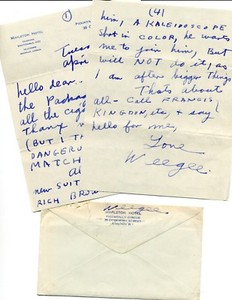 (1)
MAPLETON HOTEL
hello dear..
the Padna
all the cig
thanx
(BUT I T
DANGERU
MATCH
new SUIT
RICH BROW
(4)
him, A KALEIDOSCOPE
Shot in COLOR, he wants
me to join him, BUT
I will NOT do it, as
I am after bigger Things
Thats about
all - Call FRANCIS,
KINGDON, etc, & say
hello for me,
Love
Weegee.
Weegee
MAPLETON HOTEL